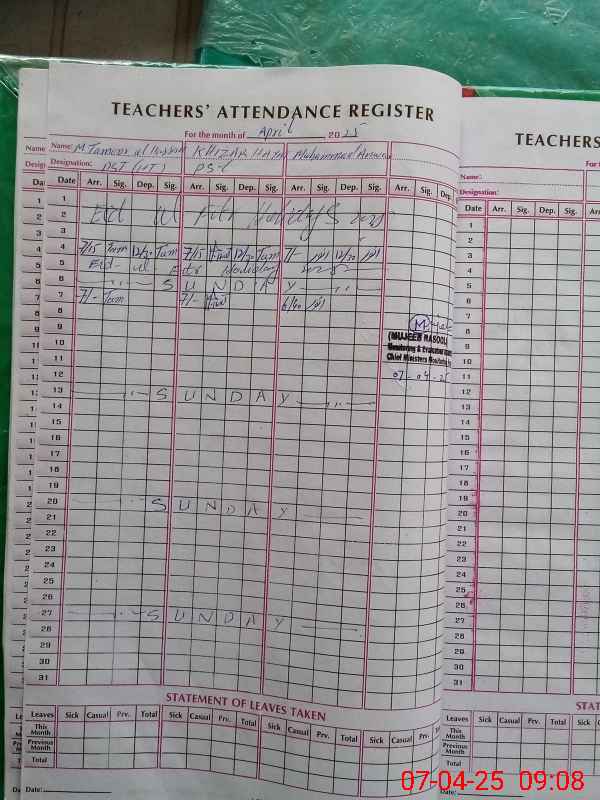 TEACHERS' ATTENDANCE REGISTER
For the month of April 2025
Name: KHIZAR HAYAT Muhammad
Designation: PST
Date Arr. Sig. Dep. Sig. Arr. Sig. Dep. Sig. Arr. Sig. Dep. Sig. Arr. Sig. Dep.
1
2 Eid ul Fitr Holidays
3
4 7/15 Tam 12/30 Tam 7/15 12/30 7/- 12/30
5 Eid ul Fitr Holiday
6 SUNDAY
7 7/- Tam 7/-
8
9
10
11
12
13 SUNDAY
14
15
16
17
18
19
20 SUNDAY
21
22
23
24
25
26
27 SUNDAY
28
29
30
31
(MUJEEB RASOOL)
Monitoring & Evaluation
Chief Ministers Monitoring
07-04-25
STATEMENT OF LEAVES TAKEN
Leaves Sick Casual Prv. Total Sick Casual Prv. Total Sick Casual Prv. Total Sick Casual Prv.
This Month
Previous Month
Total
Date:
TEACHERS'
Name:
Designation:
Date Arr. Sig. Dep. Sig. Arr.
1
2
3
4
5
6
7
8
9
10
11
12
13
14
15
16
17
18
19
20
21
22
23
24
25
26
27
28
29
30
31
STAT
Leaves Sick Casual Prv. Total Sick
This Month
Previous Month
Total
Date:
07-04-25 09:08